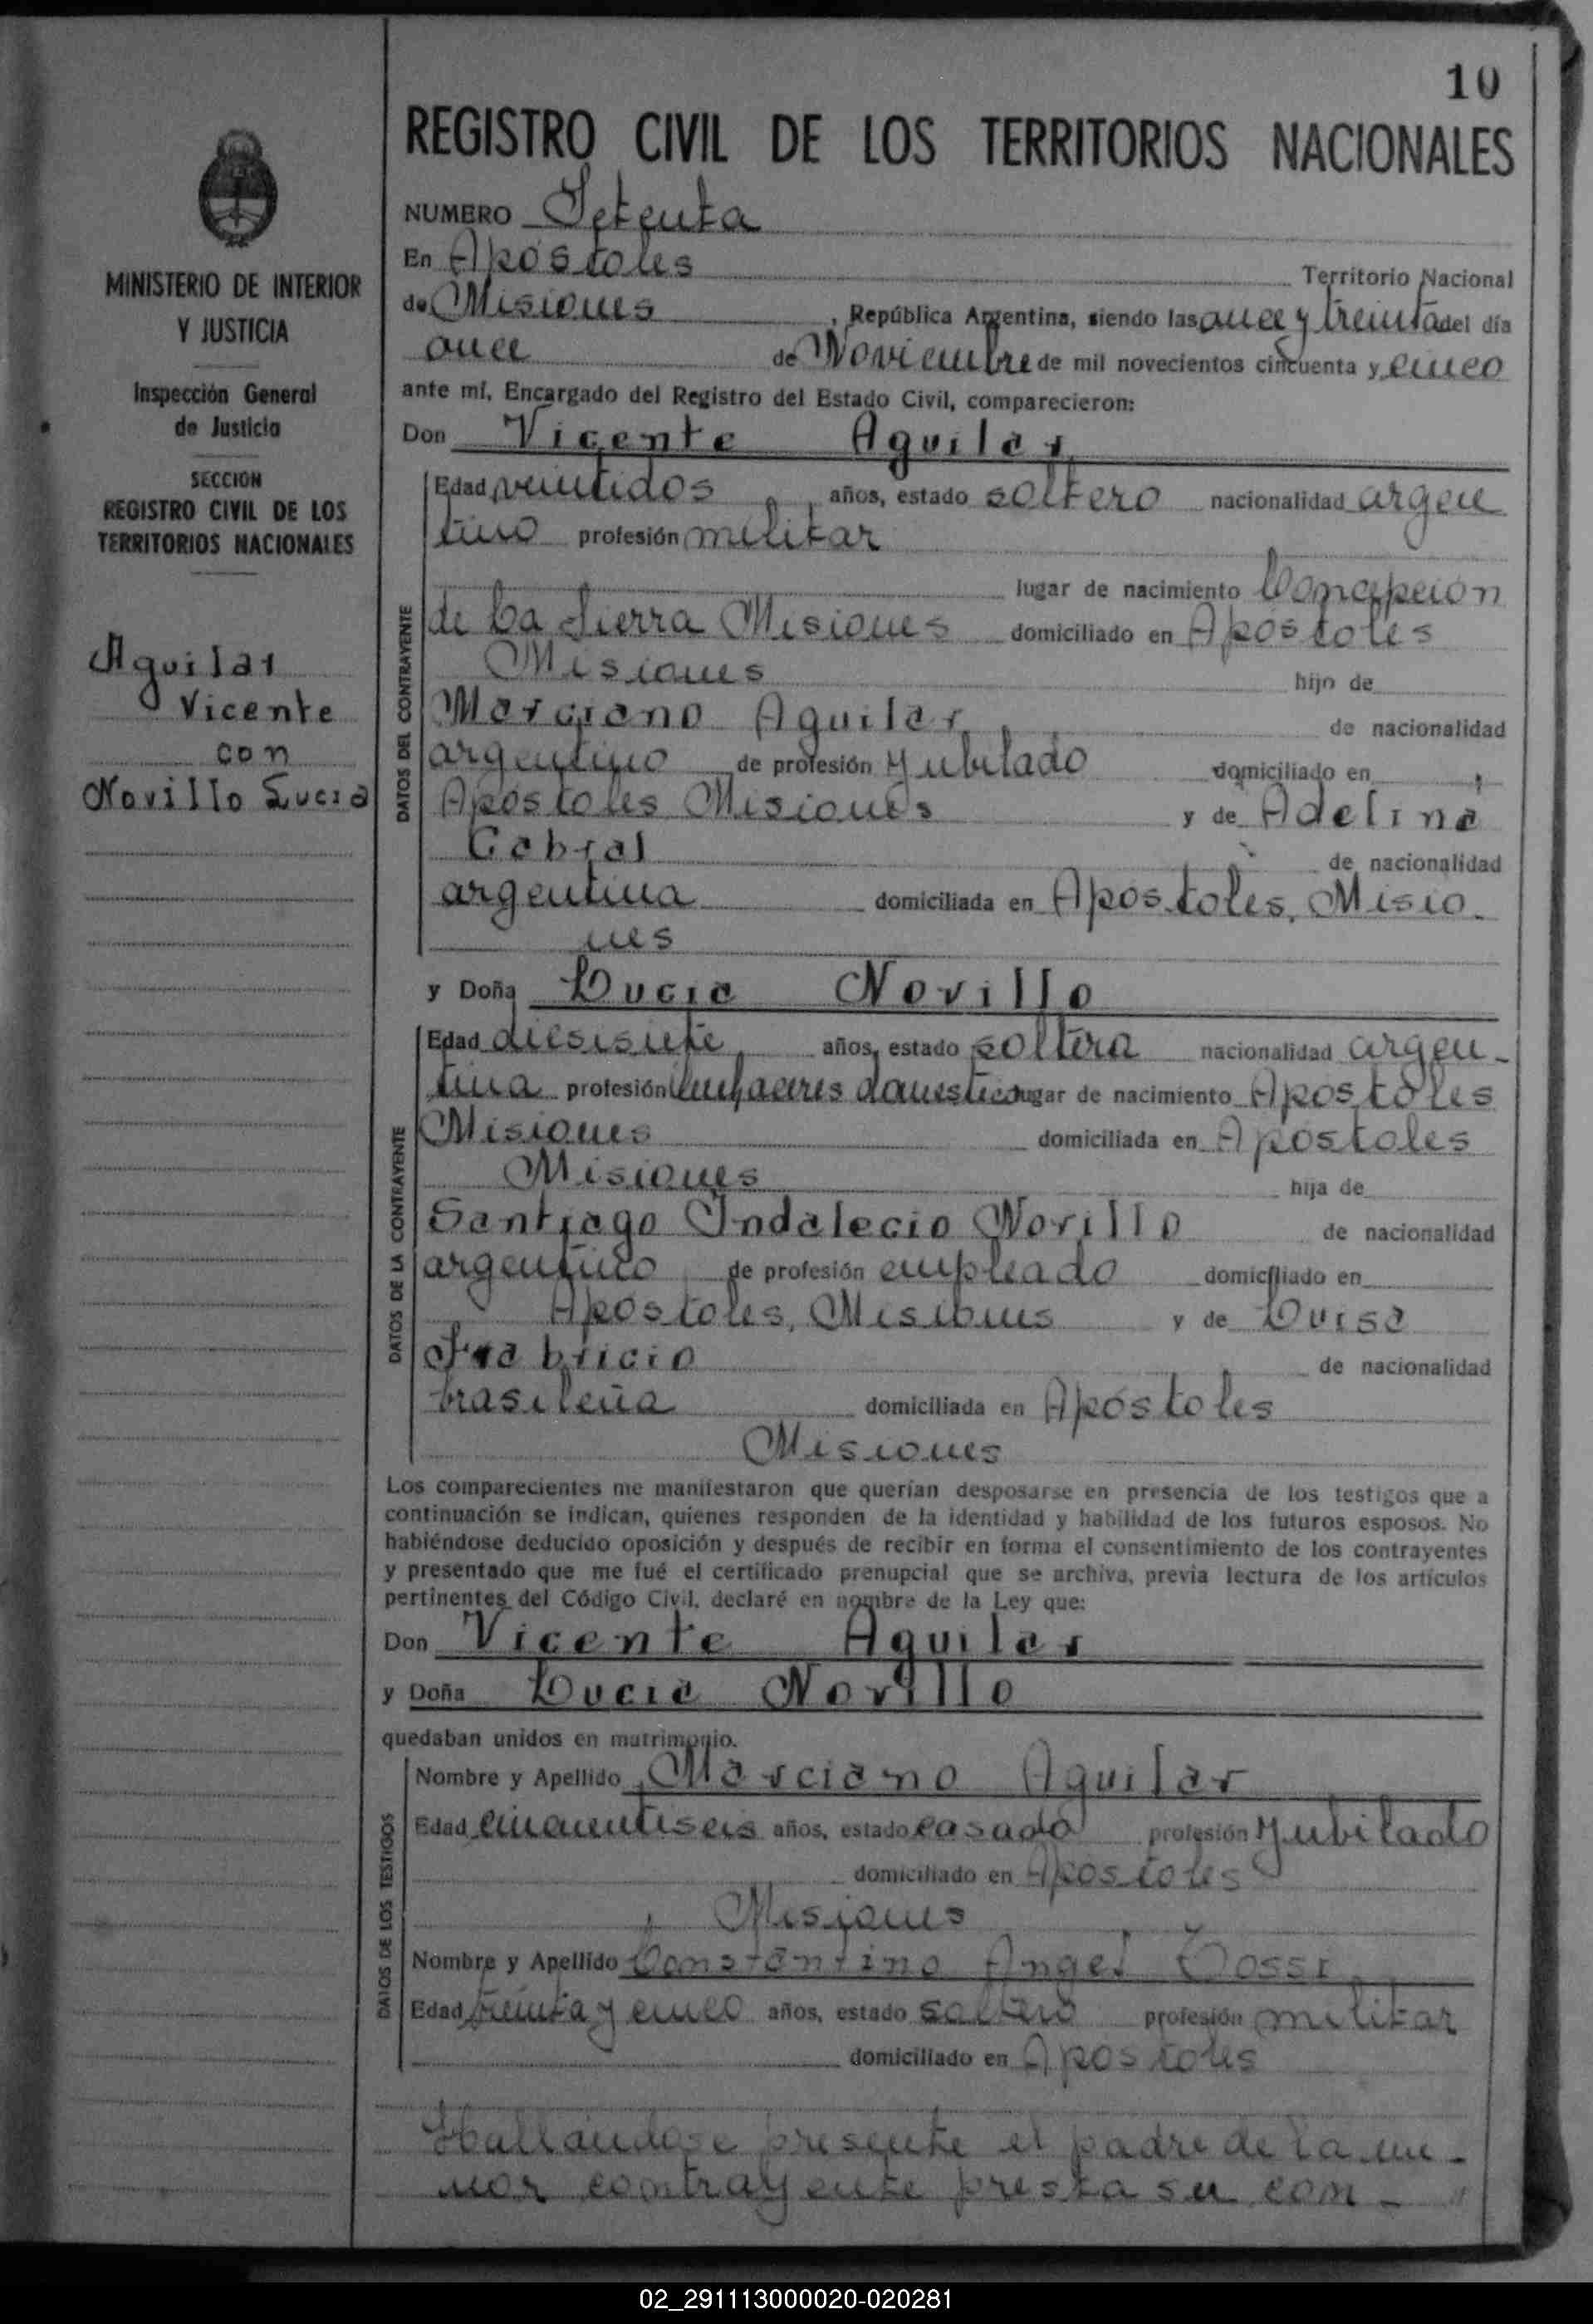 10
REGISTRO CIVIL DE LOS TERRITORIOS NACIONALES
MINISTERIO DE INTERIOR
Y JUSTICIA
Inspección General
de Justicia
SECCION
REGISTRO CIVIL DE LOS
TERRITORIOS NACIONALES
Aguilar
Vicente
con
Novillo Lucia
NUMERO Setenta
En Apóstoles Territorio Nacional
de Misiones, República Argentina, siendo las once y treinta del día
once de Noviembre de mil novecientos cincuenta y cinco
ante mí, Encargado del Registro del Estado Civil, comparecieron:
Don Vicente Aguilar
DATOS DEL CONTRAYENTE
Edad veintidos años, estado soltero nacionalidad argen
tino profesión militar
lugar de nacimiento Concepción
de La Sierra Misiones domiciliado en Apostoles
Misiones hijo de
Marciano Aguilar de nacionalidad
argentino de profesión Jubilado domiciliado en
Apostoles Misiones y de Adelina
Cabral de nacionalidad
argentina domiciliada en Apostoles, Misio-
nes
y Doña Lucia Novillo
DATOS DE LA CONTRAYENTE
Edad diesisiete años, estado soltera nacionalidad argen-
tina profesión quehaceres domesticos lugar de nacimiento Apostoles
Misiones domiciliada en Apostoles
Misiones hija de
Santiago Indalecio Novillo de nacionalidad
argentino de profesión empleado domiciliado en
Apostoles, Misiones y de Luisa
Fabricio de nacionalidad
brasileña domiciliada en Apóstoles
Misiones
Los comparecientes me manifestaron que querían desposarse en presencia de los testigos que a
continuación se indican, quienes responden de la identidad y habilidad de los futuros esposos. No
habiéndose deducido oposición y después de recibir en forma el consentimiento de los contrayentes
y presentado que me fué el certificado prenupcial que se archiva, previa lectura de los artículos
pertinentes del Código Civil, declaré en nombre de la Ley que:
Don Vicente Aguilar
y Doña Lucia Novillo
quedaban unidos en matrimonio.
DATOS DE LOS TESTIGOS
Nombre y Apellido Marciano Aguilar
Edad cincuentiseis años, estado casado profesión Jubilado
domiciliado en Apostoles
Misiones
Nombre y Apellido Constantino Angel
Edad treinta y cinco años, estado soltero profesión militar
domiciliado en Apostoles
Hallandose presente el padre de la me-
nor contrayente presta su con-
02_291113000020-020281